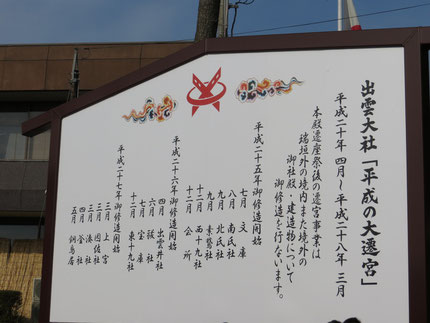 出雲大社「平成の大遷宮」
平成二十年 四月～平成二十八年 三月
本殿遷座祭後の遷宮事業は
瑞垣外の境内また境外の
御社殿・建造物について
御修造を行ないます。
平成二十五年御修造開始
七月 文庫
八月 南氏社
九月 北氏社
九月 素鵞社
十二月 西十九社
十二月 会所
平成二十六年御修造開始
四月 出雲井社
六月 祓社
七月 宝庫
十二月 東十九社
平成二十七年御修造開始
三月 上宮
三月 因佐社
三月 湊社
四月 釜社
五月 釧鳥居